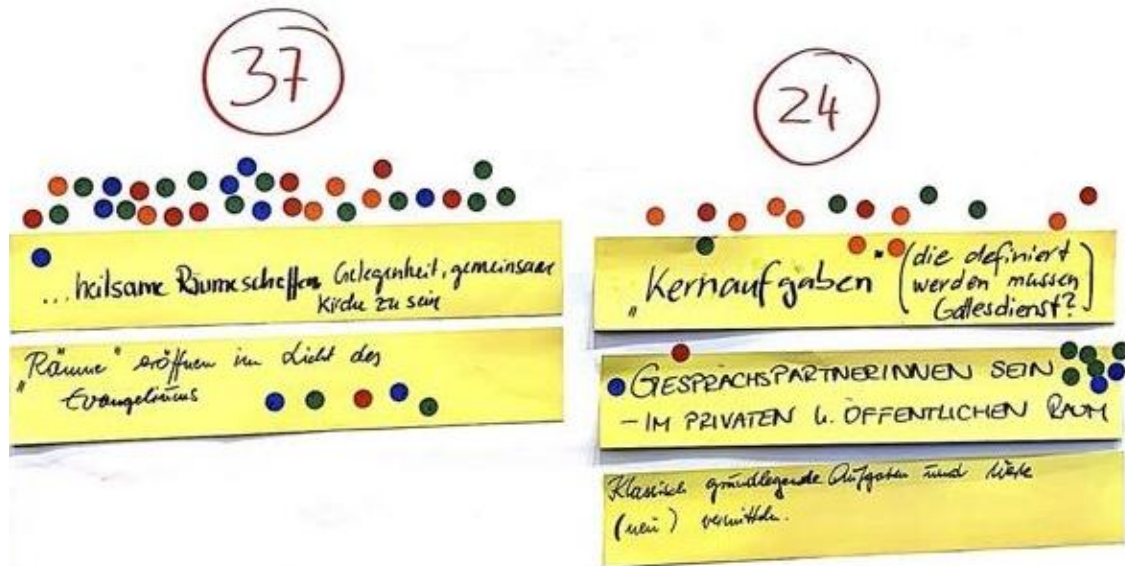 37
...heilsame Räume schaffen Gelegenheit, gemeinsam
Kirche zu sein
„Räume" eröffnen im Licht des
Evangeliums
24
„Kernaufgaben" (die definiert
werden müssen
Gottesdienst?)
GESPRÄCHSPARTNERINNEN SEIN
- IM PRIVATEN U. ÖFFENTLICHEN RAUM
Klassisch grundlegende Aufgaben und Werte
(neu) vermitteln.